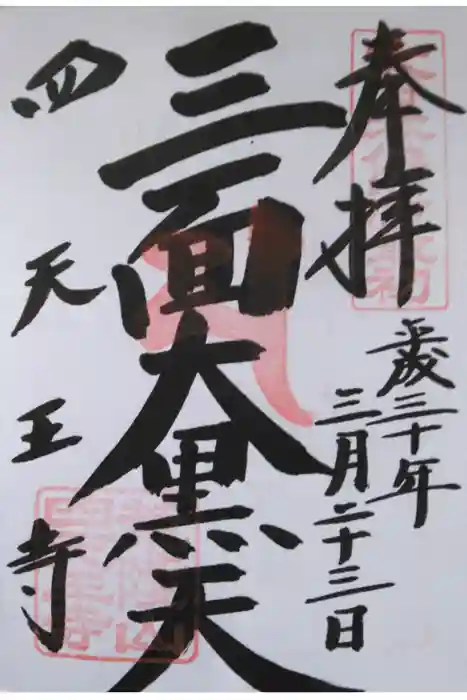 奉拝
平成三十年
三月二十三日
三面大黒天
四天王寺